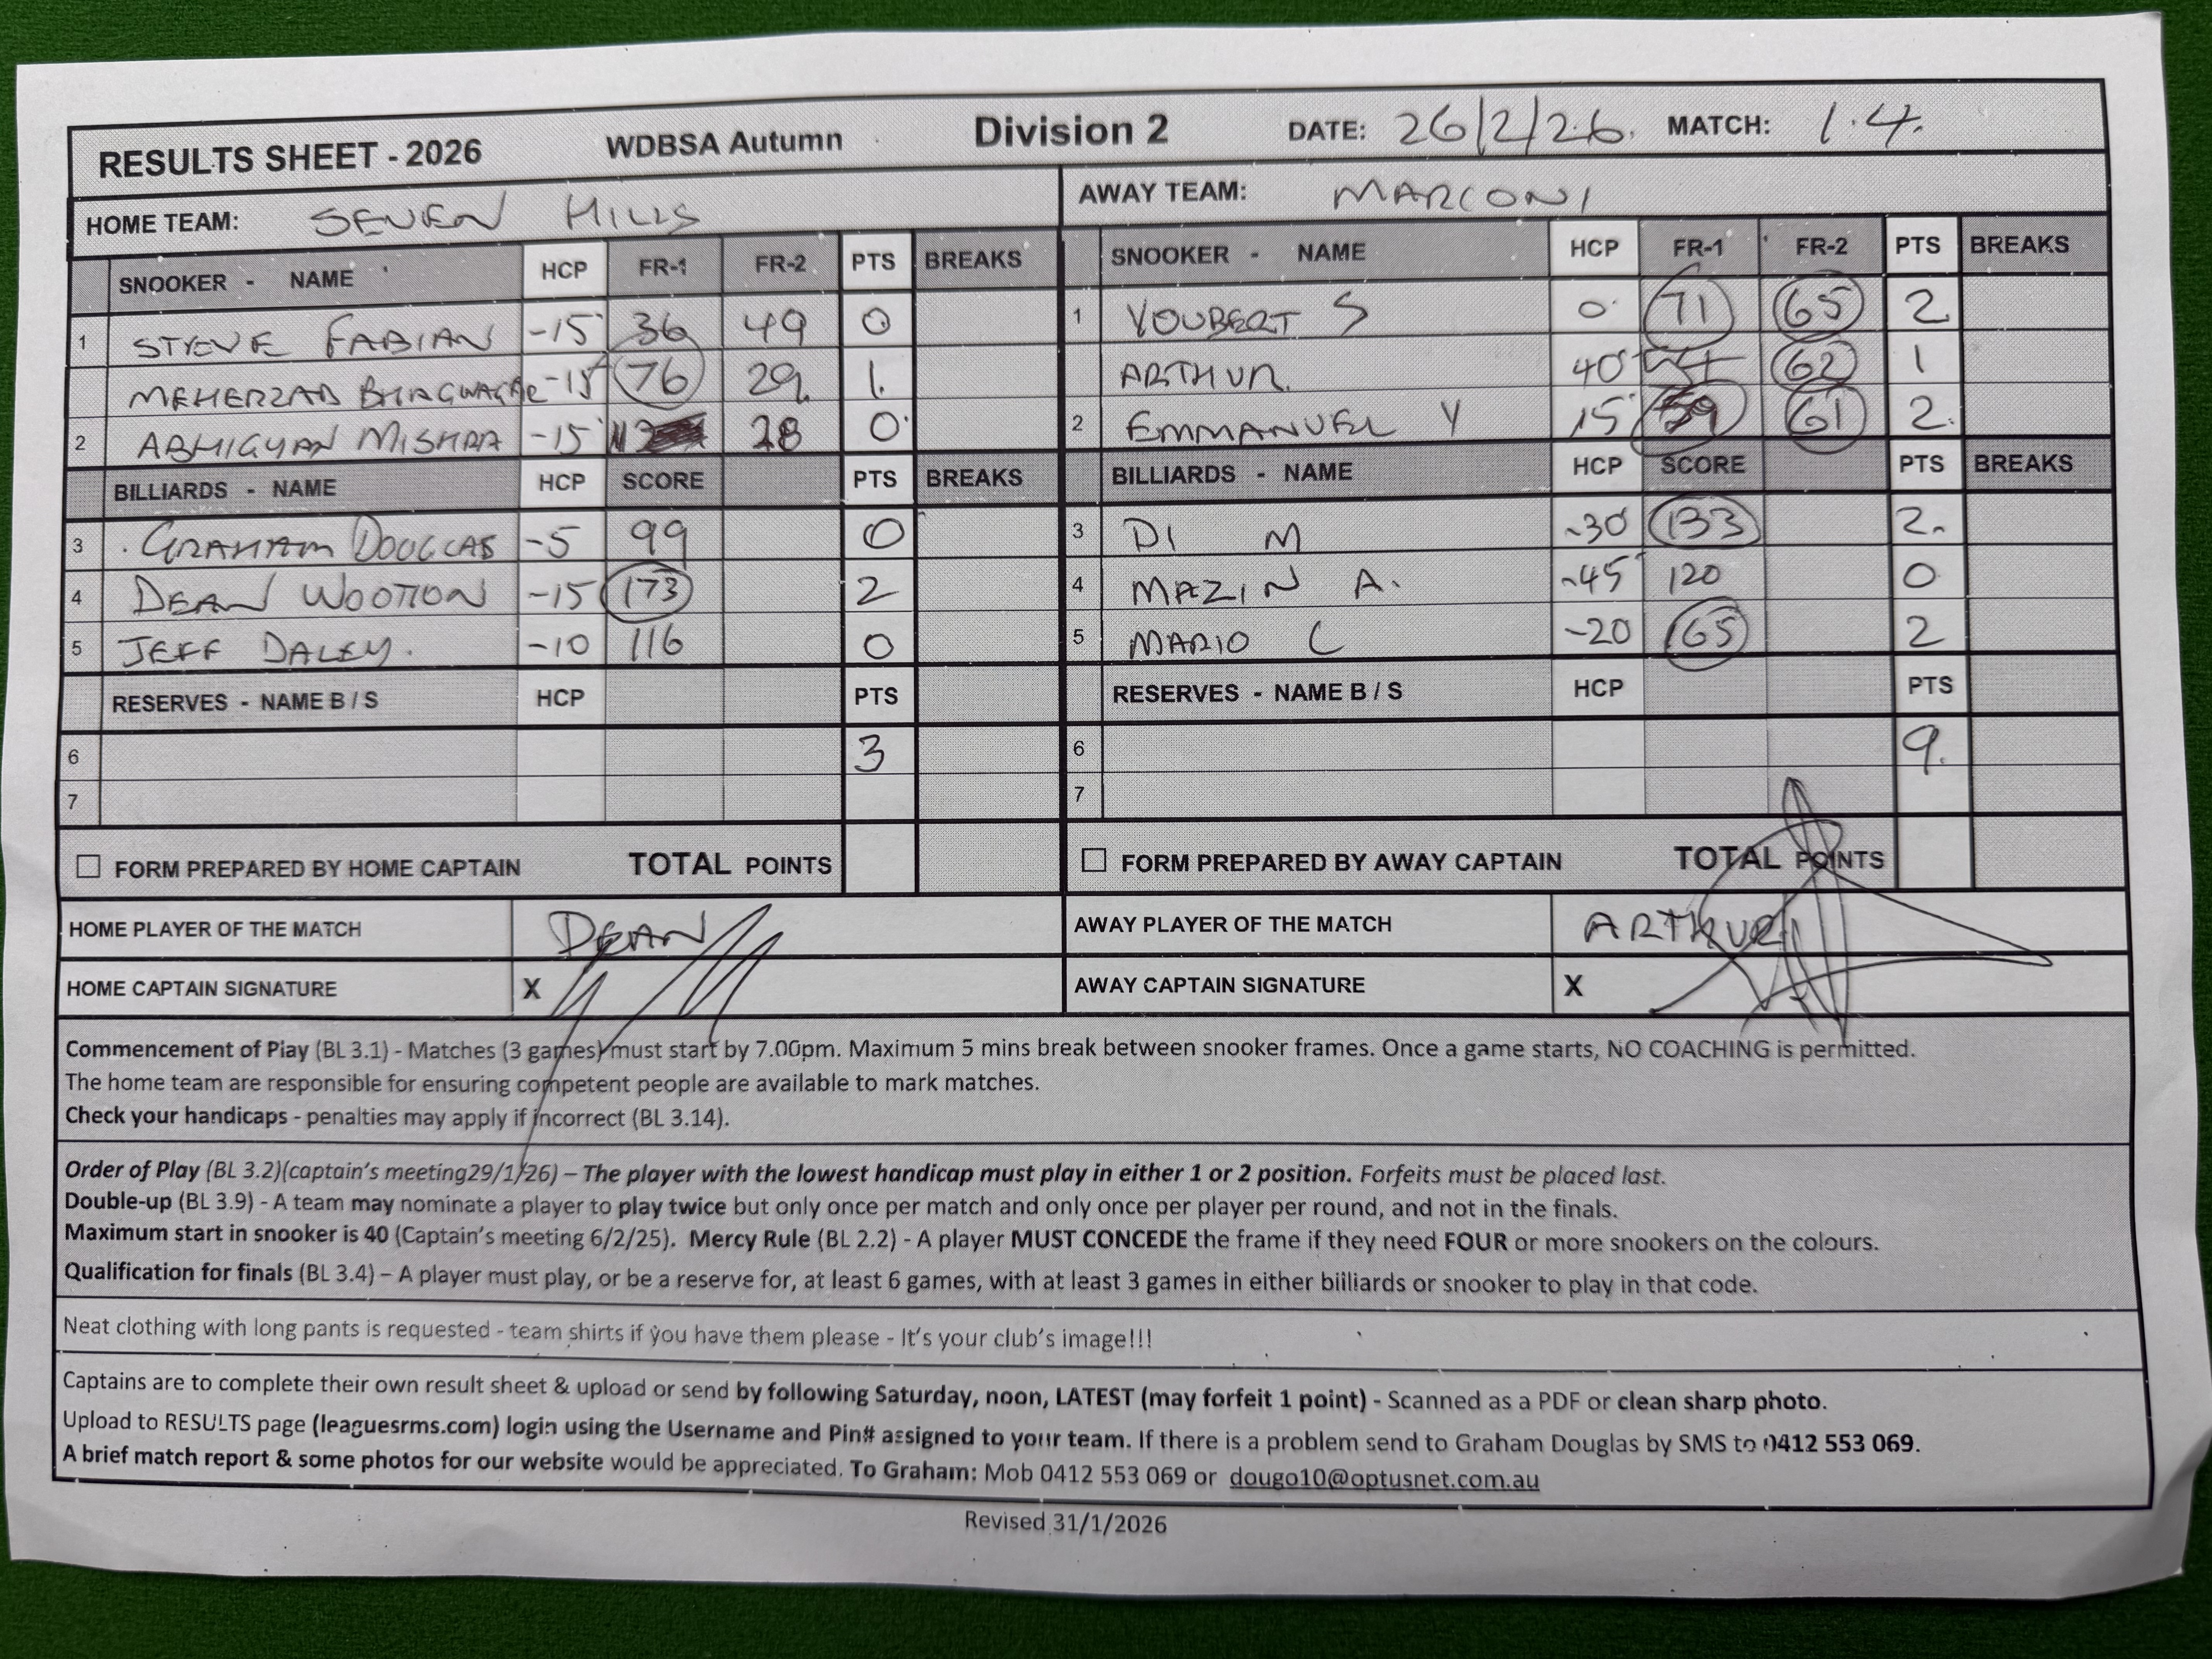 RESULTS SHEET - 2026 WDBSA Autumn Division 2 DATE: 26/2/26. MATCH: 1.4.
HOME TEAM: SEVEN HILLS AWAY TEAM: MARCONI
SNOOKER - NAME HCP FR-1 FR-2 PTS BREAKS SNOOKER - NAME HCP FR-1 FR-2 PTS BREAKS
1 STEVE FABIAN -15 36 49 0 1 YOUBERT S 0 71 65 2
MEHERZAD -15 76 29. 1. ARTHUR. 40 62 1
2 ABHIGYAN MISHRA -15 28 0 2 EMMANUEL Y 15 59 61 2.
BILLIARDS - NAME HCP SCORE PTS BREAKS BILLIARDS - NAME HCP SCORE PTS BREAKS
3 GRAHAM DOUGLAS -5 99 0 3 DI M -30 133 2.
4 DEAN WOOTTON -15 173 2 4 MAZIN A. -45 120 0
5 JEFF DALEY. -10 116 0 5 MARIO C -20 165 2
RESERVES - NAME B / S HCP PTS RESERVES - NAME B / S HCP PTS
6 3 6 9.
7 7
FORM PREPARED BY HOME CAPTAIN TOTAL POINTS FORM PREPARED BY AWAY CAPTAIN TOTAL POINTS
HOME PLAYER OF THE MATCH DEAN AWAY PLAYER OF THE MATCH ARTHUR
HOME CAPTAIN SIGNATURE X AWAY CAPTAIN SIGNATURE X
Commencement of Play (BL 3.1) - Matches (3 games) must start by 7.00pm. Maximum 5 mins break between snooker frames. Once a game starts, NO COACHING is permitted.
The home team are responsible for ensuring competent people are available to mark matches.
Check your handicaps - penalties may apply if incorrect (BL 3.14).
Order of Play (BL 3.2)(captain's meeting29/1/26) – The player with the lowest handicap must play in either 1 or 2 position. Forfeits must be placed last.
Double-up (BL 3.9) - A team may nominate a player to play twice but only once per match and only once per player per round, and not in the finals.
Maximum start in snooker is 40 (Captain's meeting 6/2/25). Mercy Rule (BL 2.2) - A player MUST CONCEDE the frame if they need FOUR or more snookers on the colours.
Qualification for finals (BL 3.4) – A player must play, or be a reserve for, at least 6 games, with at least 3 games in either billiards or snooker to play in that code.
Neat clothing with long pants is requested - team shirts if you have them please - It's your club's image!!!
Captains are to complete their own result sheet & upload or send by following Saturday, noon, LATEST (may forfeit 1 point) - Scanned as a PDF or clean sharp photo.
Upload to RESULTS page (leaguesrms.com) login using the Username and Pin# assigned to your team. If there is a problem send to Graham Douglas by SMS to 0412 553 069.
A brief match report & some photos for our website would be appreciated. To Graham: Mob 0412 553 069 or dougo10@optusnet.com.au
Revised 31/1/2026